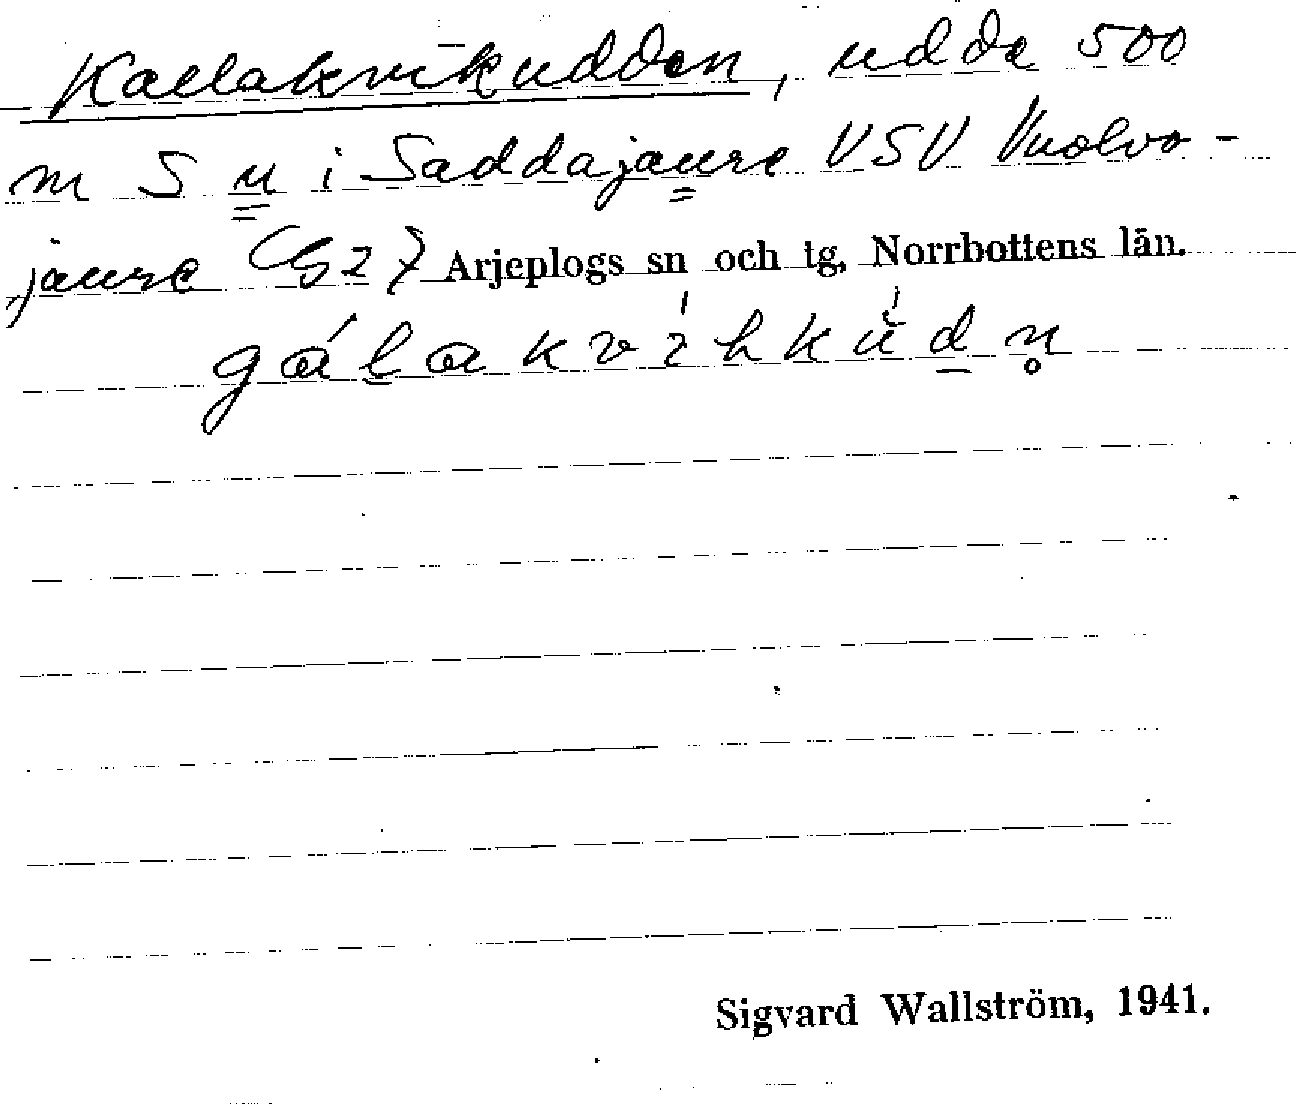 Kallakvikudden, udde 500
m S u i Saddajaure VSV Vuolvo-
jaure (G2) Arjeplogs sn och tg, Norrbottens län.
gálakvíhkúdn̥
Sigvard Wallström, 1941.